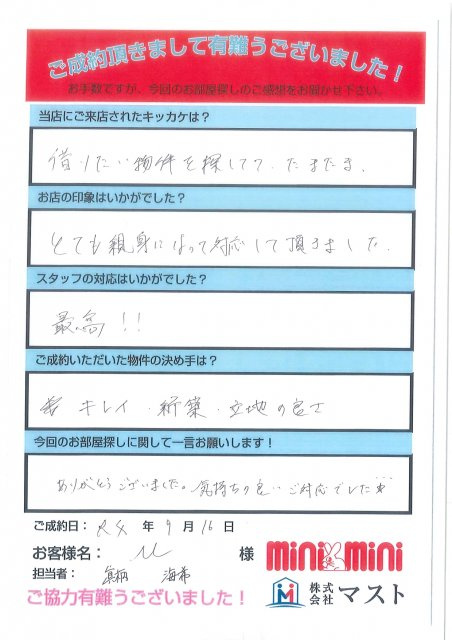 ご成約頂きまして有難うございました！
お手数ですが、今回のお部屋探しのご感想をお聞かせ下さい。
当店にご来店されたキッカケは？
借りたい物件を探してて、たまたま、
お店の印象はいかがでした？
とても親身になって対応して頂きました。
スタッフの対応はいかがでした？
最高!!
ご成約いただいた物件の決め手は？
キレイ・新築・立地の良さ
今回のお部屋探しに関して一言お願いします！
ありがとうございました。気持ちの良いご対応でした
ご成約日： R4 年 9月 16日
お客様名： M 様
minimini
担当者： 海希
株式会社 マスト
ご協力有難うございました！